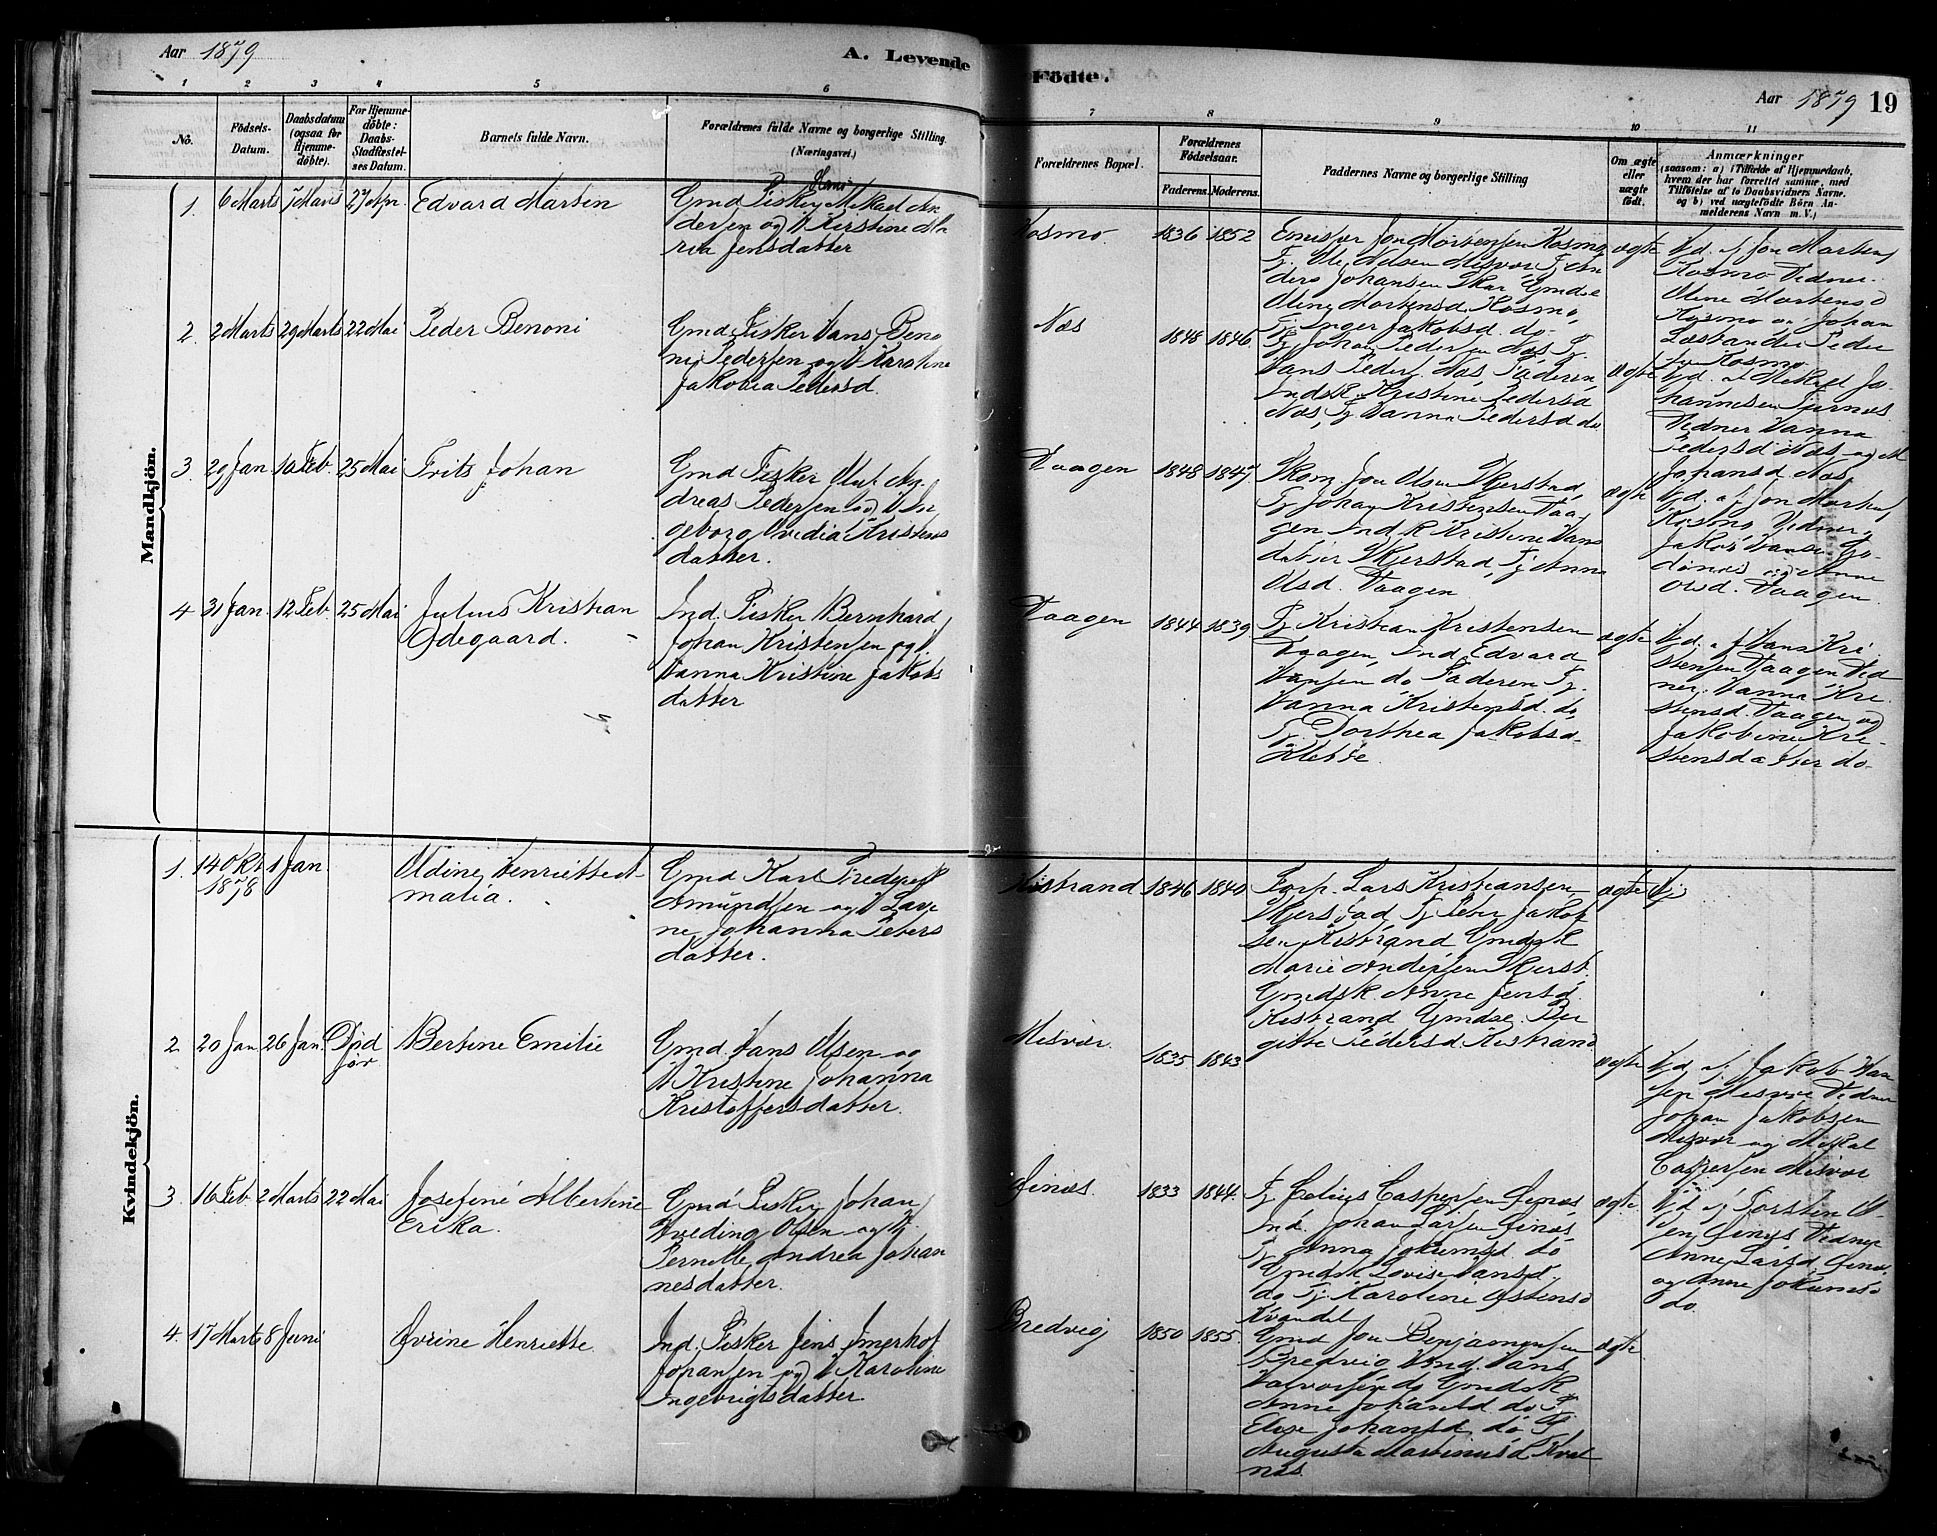 Aar 1879
A. Levende
Födte.
Aar 1879
19
1 2 3 4 5 6 7 8 9 10 11
No.
Födsels-
Datum.
Daabsdatum
(ogsaa for
Hjemme-
döbte).
For Hjemme-
döbte:
Daabs-
Stadfæstel-
ses Datum.
Barnets fulde Navn.
Forældrenes fulde Navne og borgerlige Stilling.
(Næringsvei.)
Forældrenes Bopæl.
Forældrenes
Födselsaar.
Faderens. Moderens.
Faddernes Navne og borgerlige Stilling
Om ægte
eller
uægte
födt.
Anmærkninger
(saasom: a) Tilfælde af Hjemmedaab,
hvem der har forrettet samme, med
Tilföielse af to Daabsvidners Navne.
og b) ved uægtefödte Börn An-
melderens Navn m. V.)
Mandkjön.
1. 6 Marts 7 Marts 27 Apr. Edvard Martin
Hans
Gmd Fisker Mikael An
dersen og H Kirstine Ma
ria Jensdatter
Kosmo. 1836 1852
Jon Mortensen Kosmo,
Tj. Ole Nilsen Misvær Tj. An
ders Johansen Skar Gmdsk
Oline Mortensd. Kosmo,
Tj. Inger Jakobsd. do
ægte
Hjd. af Jon Martens
Kosmo Vidner
Oline Mortensd
Kosmo og Johan
Peder
sen Kosmo
2. 2 Marts 29 Marts 22 Mai Peder Benoni
Gmd. Fisker Hans Beno
ni Pedersen og H Karoline
Jakobia Pedersd.
Næs 1848 1846.
Tj. Johan Pedersen Næs Tj.
Hans Peders. Næs Faderen,
Indsk. Kristine Pedersd
Næs, Tj. Hanna Pedersd do.
ægte
Hjd. af Mikael Jo-
hannesen
Vidner Hanna
Pedersd Næs og
Johansd Næs
3 29 Jan. 10 Feb. 25 Mai Frits Johan
Gmd Fisker Olut An
dreas Pedersen og H In
geborg Ovidia Kristens
datter.
Vaagen 1848 1847
Skom. Jon Olsen Skjerstad,
Tj Johan Kristensen Vaa
gen Indsk Kristine Hans
datter Skjerstad, Tj Anna
Olsd. Vaagen
ægte
Hjd. af Jon Martens
Kosmo Vidner
Jakob Hansen Go-
dönes og Anne
Olsd. Vaagen.
4 31 Jan. 12 Feb. 25 Mai Julius Kristian
Ödegaard.
Ind. Fisker Bernhard
Johan Kristensen og H.
Hanna Kristine Jakobs
datter
Vaagen 1844 1839
Tj Kristian Kristensen
Vaagen, Ind. Edvard
Hansen do Faderen Tj.
Hanna Kristensd. do,
Tj. Dorthea Jakobsd.
Klette.
ægte
Hjd. af Hans Kri
stensen Vaagen Vid
ner. Hanna Kri
stensd. Vaagen og
Jakobine Kri-
stensdatter do
Kvindekjön.
1. 14 Okt
1878
1 Jan.
Oldine Henriette A
malia.
Gmd Karl Fredrik
Amundsen og H Lave
ne Johanna Peters
datter.
Kistrand 1846 1840
Lars Kristiansen
Skjerstad, Tj Peter Jakob
sen Kistrand Gmdsk
Marie Andersen Skjerst.
Gmdsk. Anne Jensd.
Kistrand Gmdsk. Bir
gitte Pedersd Kistrand
ægte
2 20 Jan 26 Jan. Död
för
Bertine Emilie
Gmd. Hans Olsen og
H Kristine Johanna
Kristoffersdatter.
Misvær. 1835 1843
ægte
Hjd. af Jakob Han
sen Misvær Vidner
Johan Jakobsen
Misvær og Mikal
Caspersen Misvær
3. 16 Feb 2 Marts 22 Mai Josefine Albertine
Erika.
Gmd Fisker Johan
Hveding Olsen og H.
Pernille Andrea Johan
nesdatter.
Öinæs. 1833 1844.
Tj Colius Caspersen Öinæs
Ind. Johan Larsen Öinæs
Tj Anna Jokumsd. do
Gmdsk Lovise Hansd.
do Tj Karoline Östensd
Kvandal
ægte.
Hjd af Torsten Ol-
sen Öinæs Vidner
Anne Larsd. Öinæs
og Anne Jokumsd
do.
4. 17 Marts 8 Juni Övrine Henriette.
Ind. Fisker Jens Imerhof
Johansen og H Karoline
Ingebrigtsdatter.
Bredvig 1850 1855.
Gmd Jon Benjaminsen
Bredvig Ind. Hans
Halvorsen do Gmdsk
Anne Johansd do Tj
Else Johansd do Tj
Augusta Martinusd. Kval
næs.
ægte